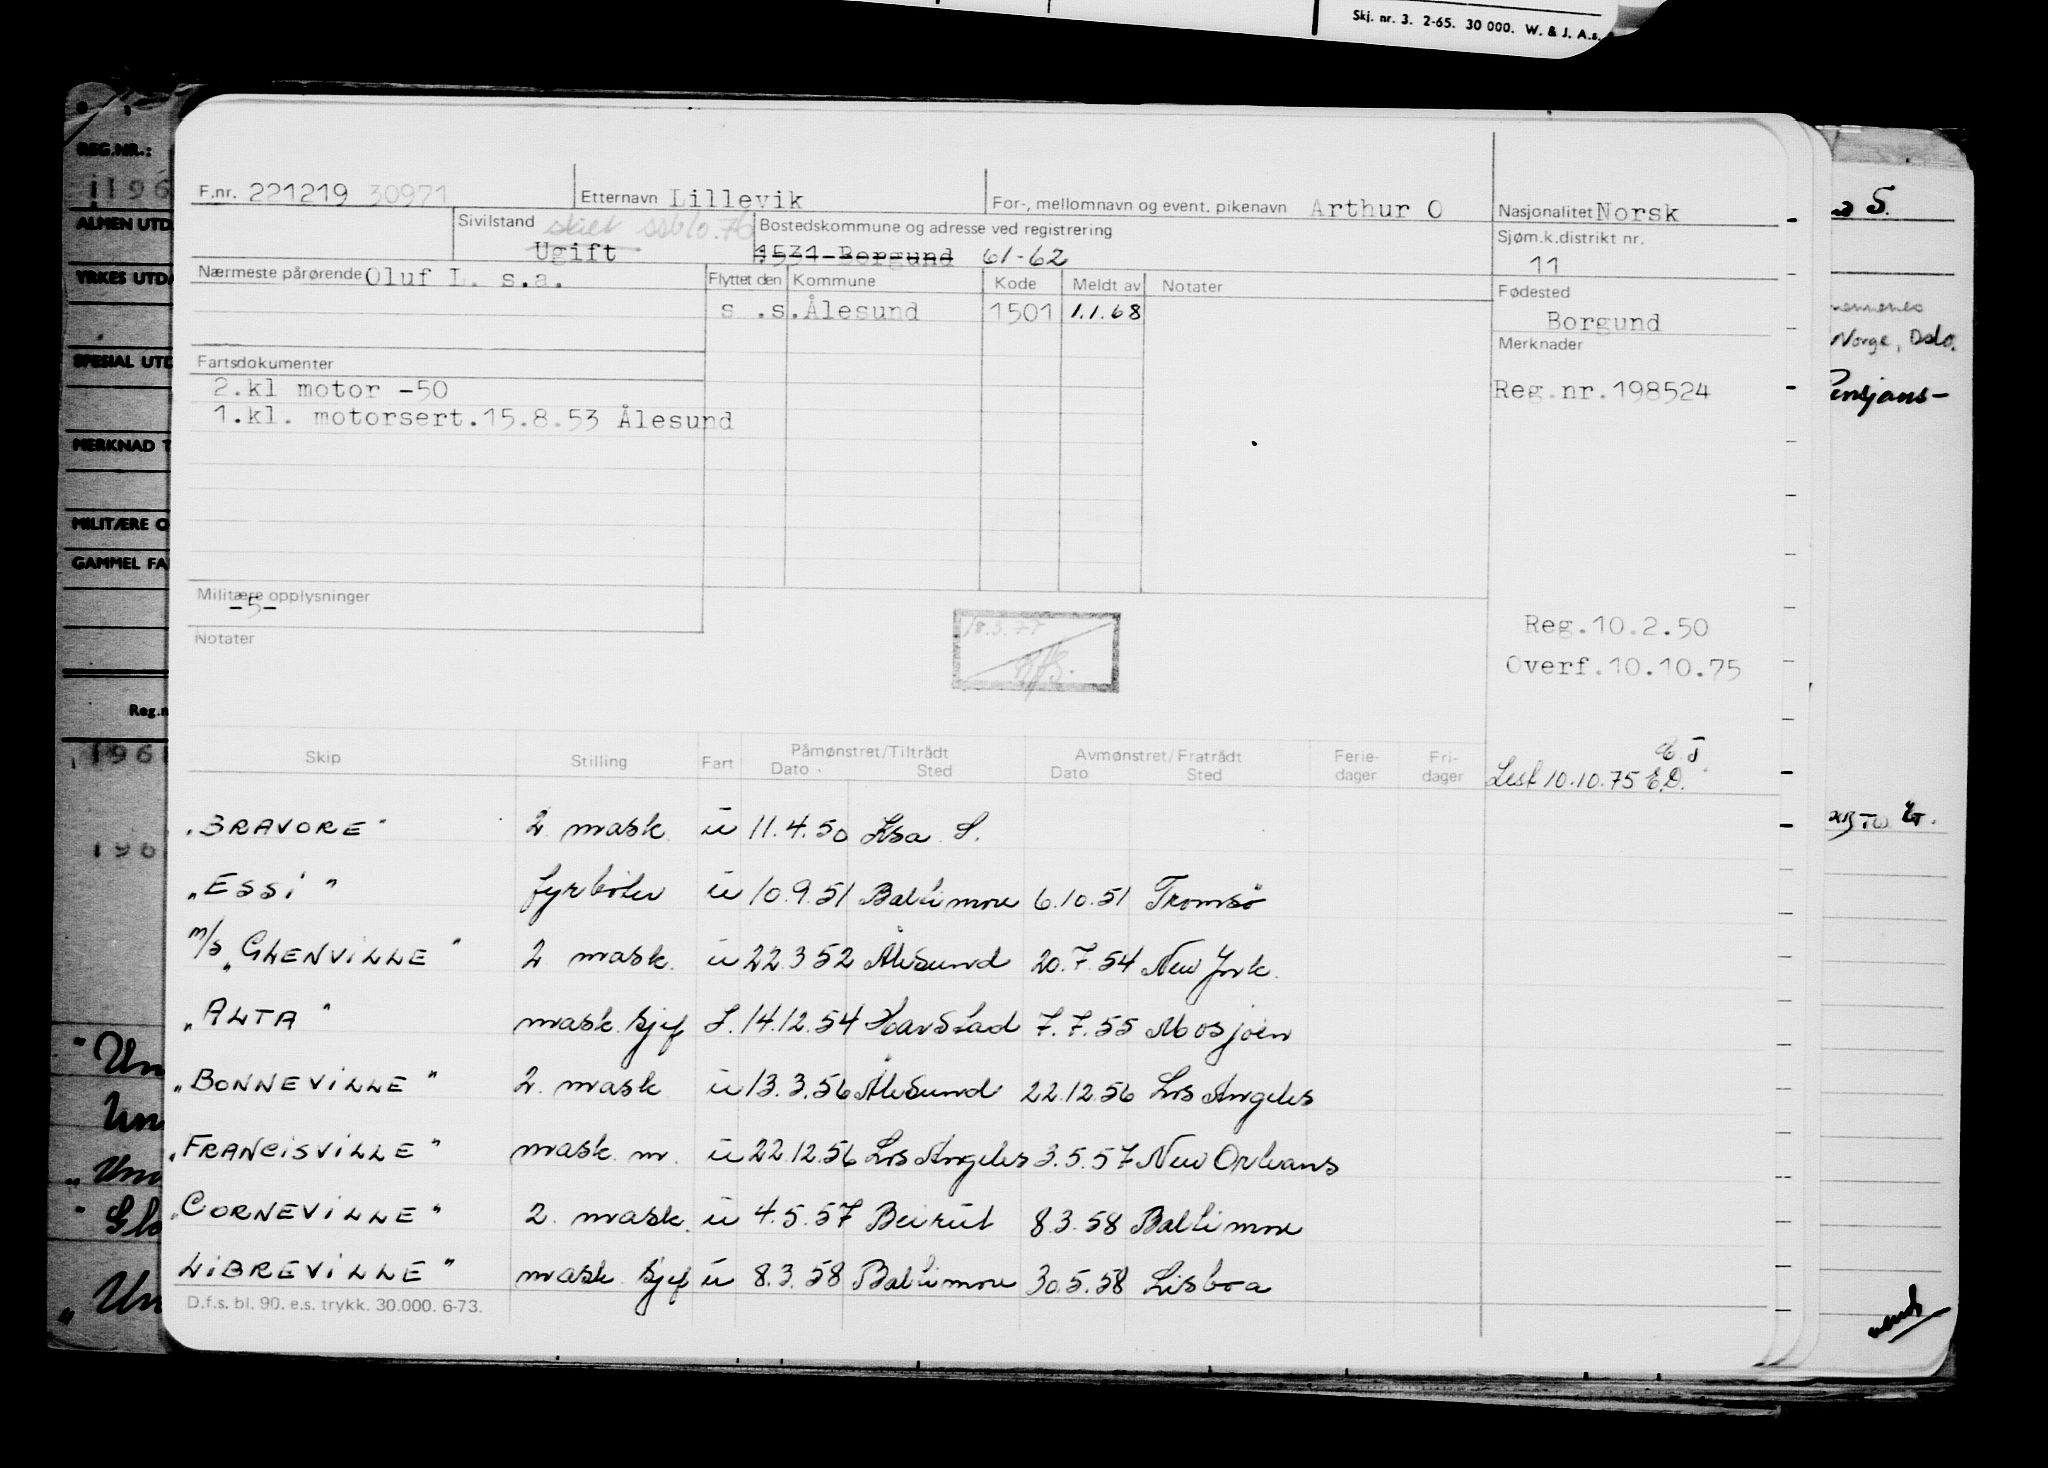 Skj. nr. 3. 2-65. 30 000. W. & J. A.s.
REG.NR.:
1196
ALMEN UTD.
YRKES UTDA
SPESIAL UTD
MERKNAD T
MILITÆRE O
GAMMEL FA
Reg.n
F.nr. 221219 30971 Etternavn Lillevik For-, mellomnavn og event. pikenavn Arthur O Nasjonalitet Norsk
Sivilstand skilt Bostedskommune og adresse ved registrering Sjøm.k.distrikt nr.
Ugift 1531 Borgund 61-62 11
Nærmeste pårørende Oluf L. s.a. Flyttet den Kommune Kode Meldt av Notater Fødested
s .s. Ålesund 1501 1.1.68 Borgund
Merknader
Fartsdokumenter
2.kl motor -50 Reg.nr.198524
1.kl. motorsert.15.8.53 Ålesund
Militære opplysninger
-5-
Notater
18.3.77
Reg.10.2.50
Overf.10.10.75
Skip Stilling Fart Påmønstret/Tiltrådt Avmønstret/Fratrådt Ferie- Fri-
Dato Sted Dato Sted dager dager
Lest 10.10.75 E.D.
"BRAVORE" 2 mask. u 11.4.50 S.
"ESSI" fyrbøter u 10.9.51 Baltimore 6.10.51 Tromsö
m/s "GLENVILLE" 2 mask. u 22.3 52 Ålesund 20.7.54 New York.
"ALTA" mask. sjef S. 14.12.54 Harstad 7.7.55 Mosjøen
"BONNEVILLE" 2. mask u 13.3.56 Ålesund 22.12.56 Los Angeles
"FRANCISVILLE" mask. m. u 22.12.56 Los Angeles 3.5.57 New Orleans
"CORNEVILLE" 2. mask. u 4.5.57 Beirut 8.3.58 Baltimore
LIBREVILLE" mask. sjef u 8.3.58 Baltimore 30.5.58 Lisboa
D.f.s. bl. 90. e.s. trykk. 30.000. 6-73.
S.
Norge, Oslo.
Pensjons-